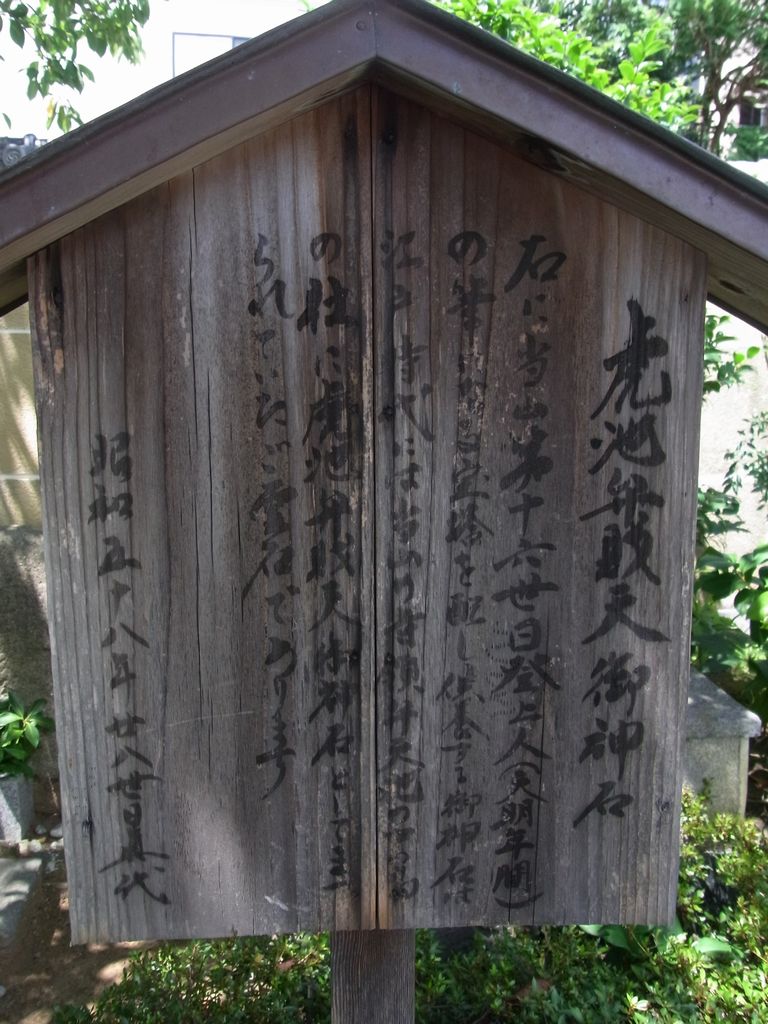 虎池弁財天御神石
右に当山第十六世日登上人(天明年間)
の筆になる宝塔を配し供養する御神石は
江戸時代には当山の寺領弁天池の
の社に虎池弁財天御神石として
られていたご霊石であります
昭和五十八年廿八世日真代